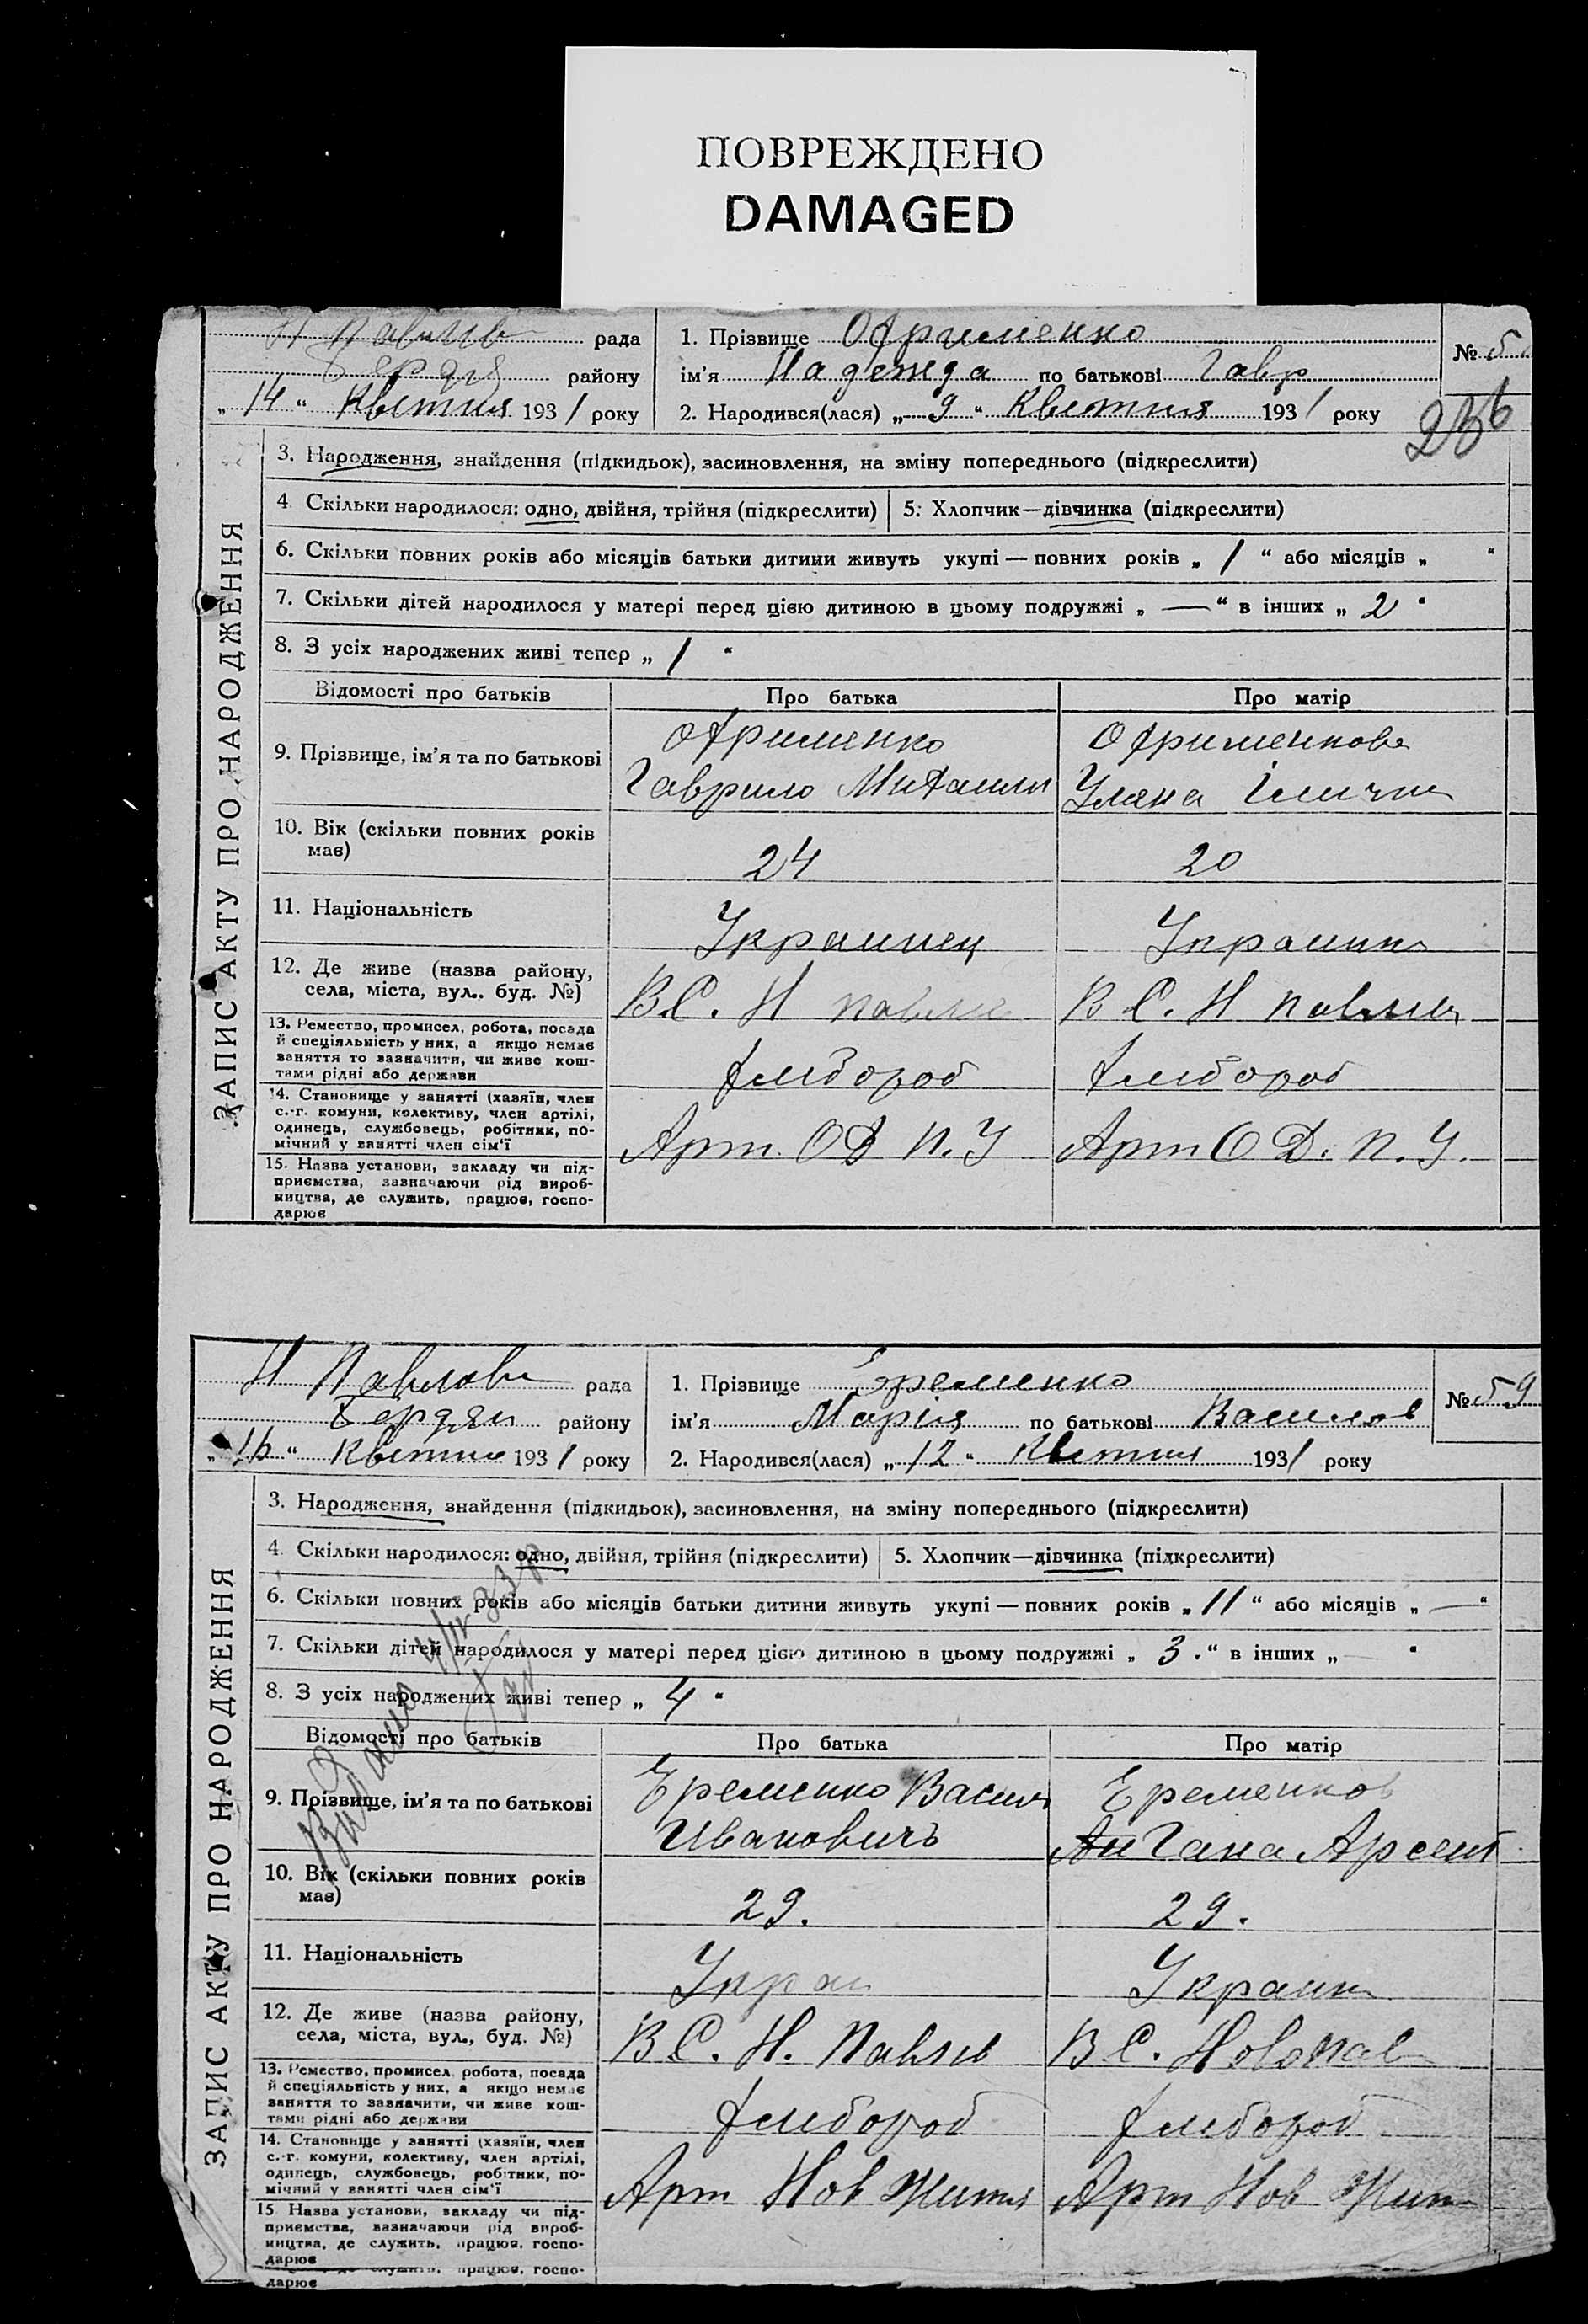 ПОВРЕЖДЕНО
DAMAGED
рада
району
„ 14 “ Квітня 193 1 року
1. Прізвище Офрименко
ім’я Надежда по батькові Гавр
2. Народився(лася) „ 9 “ Квітня 193 1 року
№ 5
236
ЗАПИС АКТУ ПРО НАРОДЖЕННЯ
3. Народження, знайдення (підкидьок), засиновлення, на зміну попереднього (підкреслити)
4 Скільки народилося: одно, двійня, трійня (підкреслити)
5. Хлопчик—дівчинка (підкреслити)
6. Скільки повних років або місяців батьки дитини живуть укупі — повних років „ 1 “ або місяців „ “
7. Скільки дітей народилося у матері перед цією дитиною в цьому подружжі „ — “ в інших „ 2 “
8. З усіх народжених живі тепер „ 1 “
Відомості про батьків
Про батька
Про матір
9. Прізвище, ім’я та по батькові
Офрименко
Гаврило Михаил
Офрименкова
Уляна
10. Вік (скільки повних років
має)
24
20
11. Національність
Украинец
Украинка
12. Де живе (назва району,
села, міста, вул., буд. №)
В С. Н Павлів
В С. Н Павлів
13. Ремество, промисел, робота, посада
й спеціяльність у них, а якщо немає
заняття то зазначити, чи живе кош-
тами рідні або держави
Хлібороб
Хлібороб
14. Становище у занятті (хазяїн, член
с.-г. комуни, колективу, член артілі,
одинець, службовець, робітник, по-
мічний у занятті член сім’ї
Арт. О Д П. У
Арт О Д. П. У.
15. Назва установи, закладу чи під-
приємства, зазначаючи рід вироб-
ництва, де служить, працює, госпо-
дарює
Н Павлов рада
Бердян району
„ 15 “ Квітня 193 1 року
1. Прізвище Еременко
ім’я Марія по батькові Василов
2. Народився(лася) „ 12 “ Квітня 193 1 року
№ 59
ЗАПИС АКТУ ПРО НАРОДЖЕННЯ
3. Народження, знайдення (підкидьок), засиновлення, на зміну попереднього (підкреслити)
4. Скільки народилося: одно, двійня, трійня (підкреслити)
5. Хлопчик—дівчинка (підкреслити)
6. Скільки повних років або місяців батьки дитини живуть укупі — повних років „ 11 “ або місяців „ — “
7. Скільки дітей народилося у матері перед цією дитиною в цьому подружжі „ 3. “ в інших „ — “
8. З усіх народжених живі тепер „ 4 “
Видано
Відомості про батьків
Про батька
Про матір
9. Прізвище, ім’я та по батькові
Еременко Васил
Ивановичъ
Еременков
Гана Арсент
10. Вік (скільки повних років
має)
29.
29.
11. Національність
Украи
Украин
12. Де живе (назва району,
села, міста, вул., буд. №)
В С. Н. Павлів
В С. Новопав
13. Ремество, промисел, робота, посада
й спеціяльність у них, а якщо немає
заняття то зазначити, чи живе кош-
тами рідні або держави
Хлібороб
Хлібороб
14. Становище у занятті (хазяїн, член
с.-г. комуни, колективу, член артілі,
одинець, службовець, робітник, по-
мічний у занятті член сім’ї
Арт Нов Життя
Арт Нов Жит
15 Назва установи, закладу чи під-
приємства, зазначаючи рід вироб-
ництва, де служить, працює, госпо-
дарює
служить, працює, госпо-
дарює